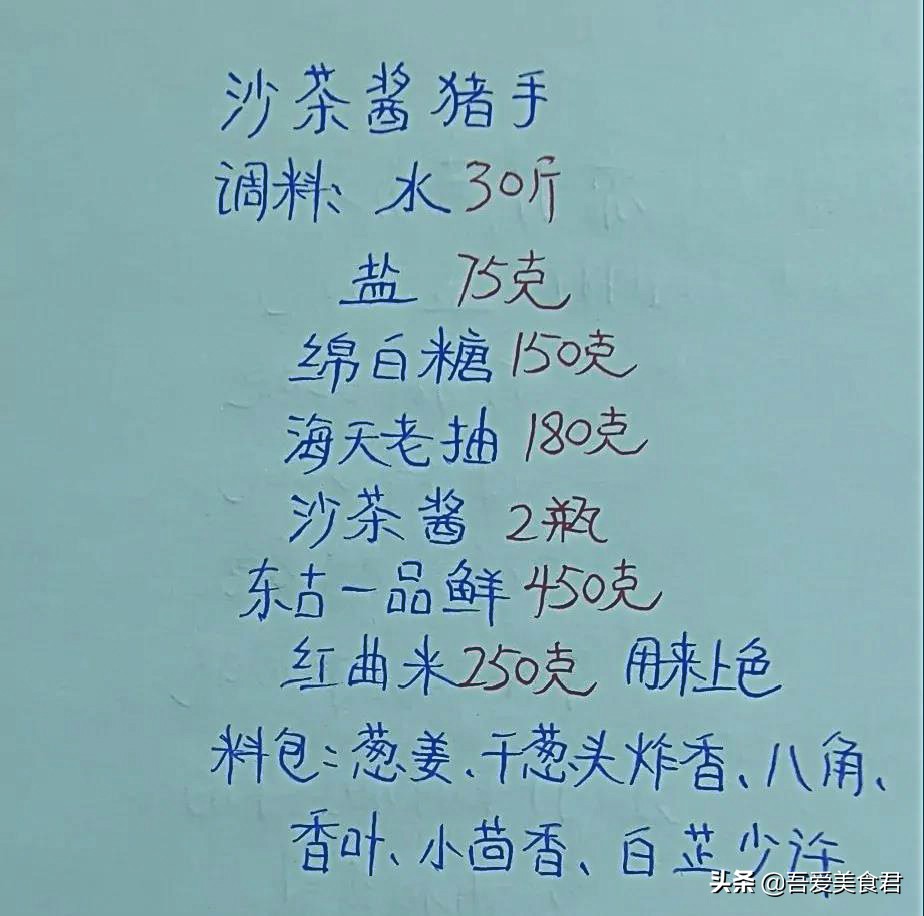 沙茶酱猪手
调料: 水 30斤
盐 75克
绵白糖 150克
海天老抽 180克
沙茶酱 2瓶
东古一品鲜 450克
红曲米 250克 用来上色
料包:葱姜、干葱头炸香、八角、
香叶、小茴香、白芷少许
头条 @吾爱美食君